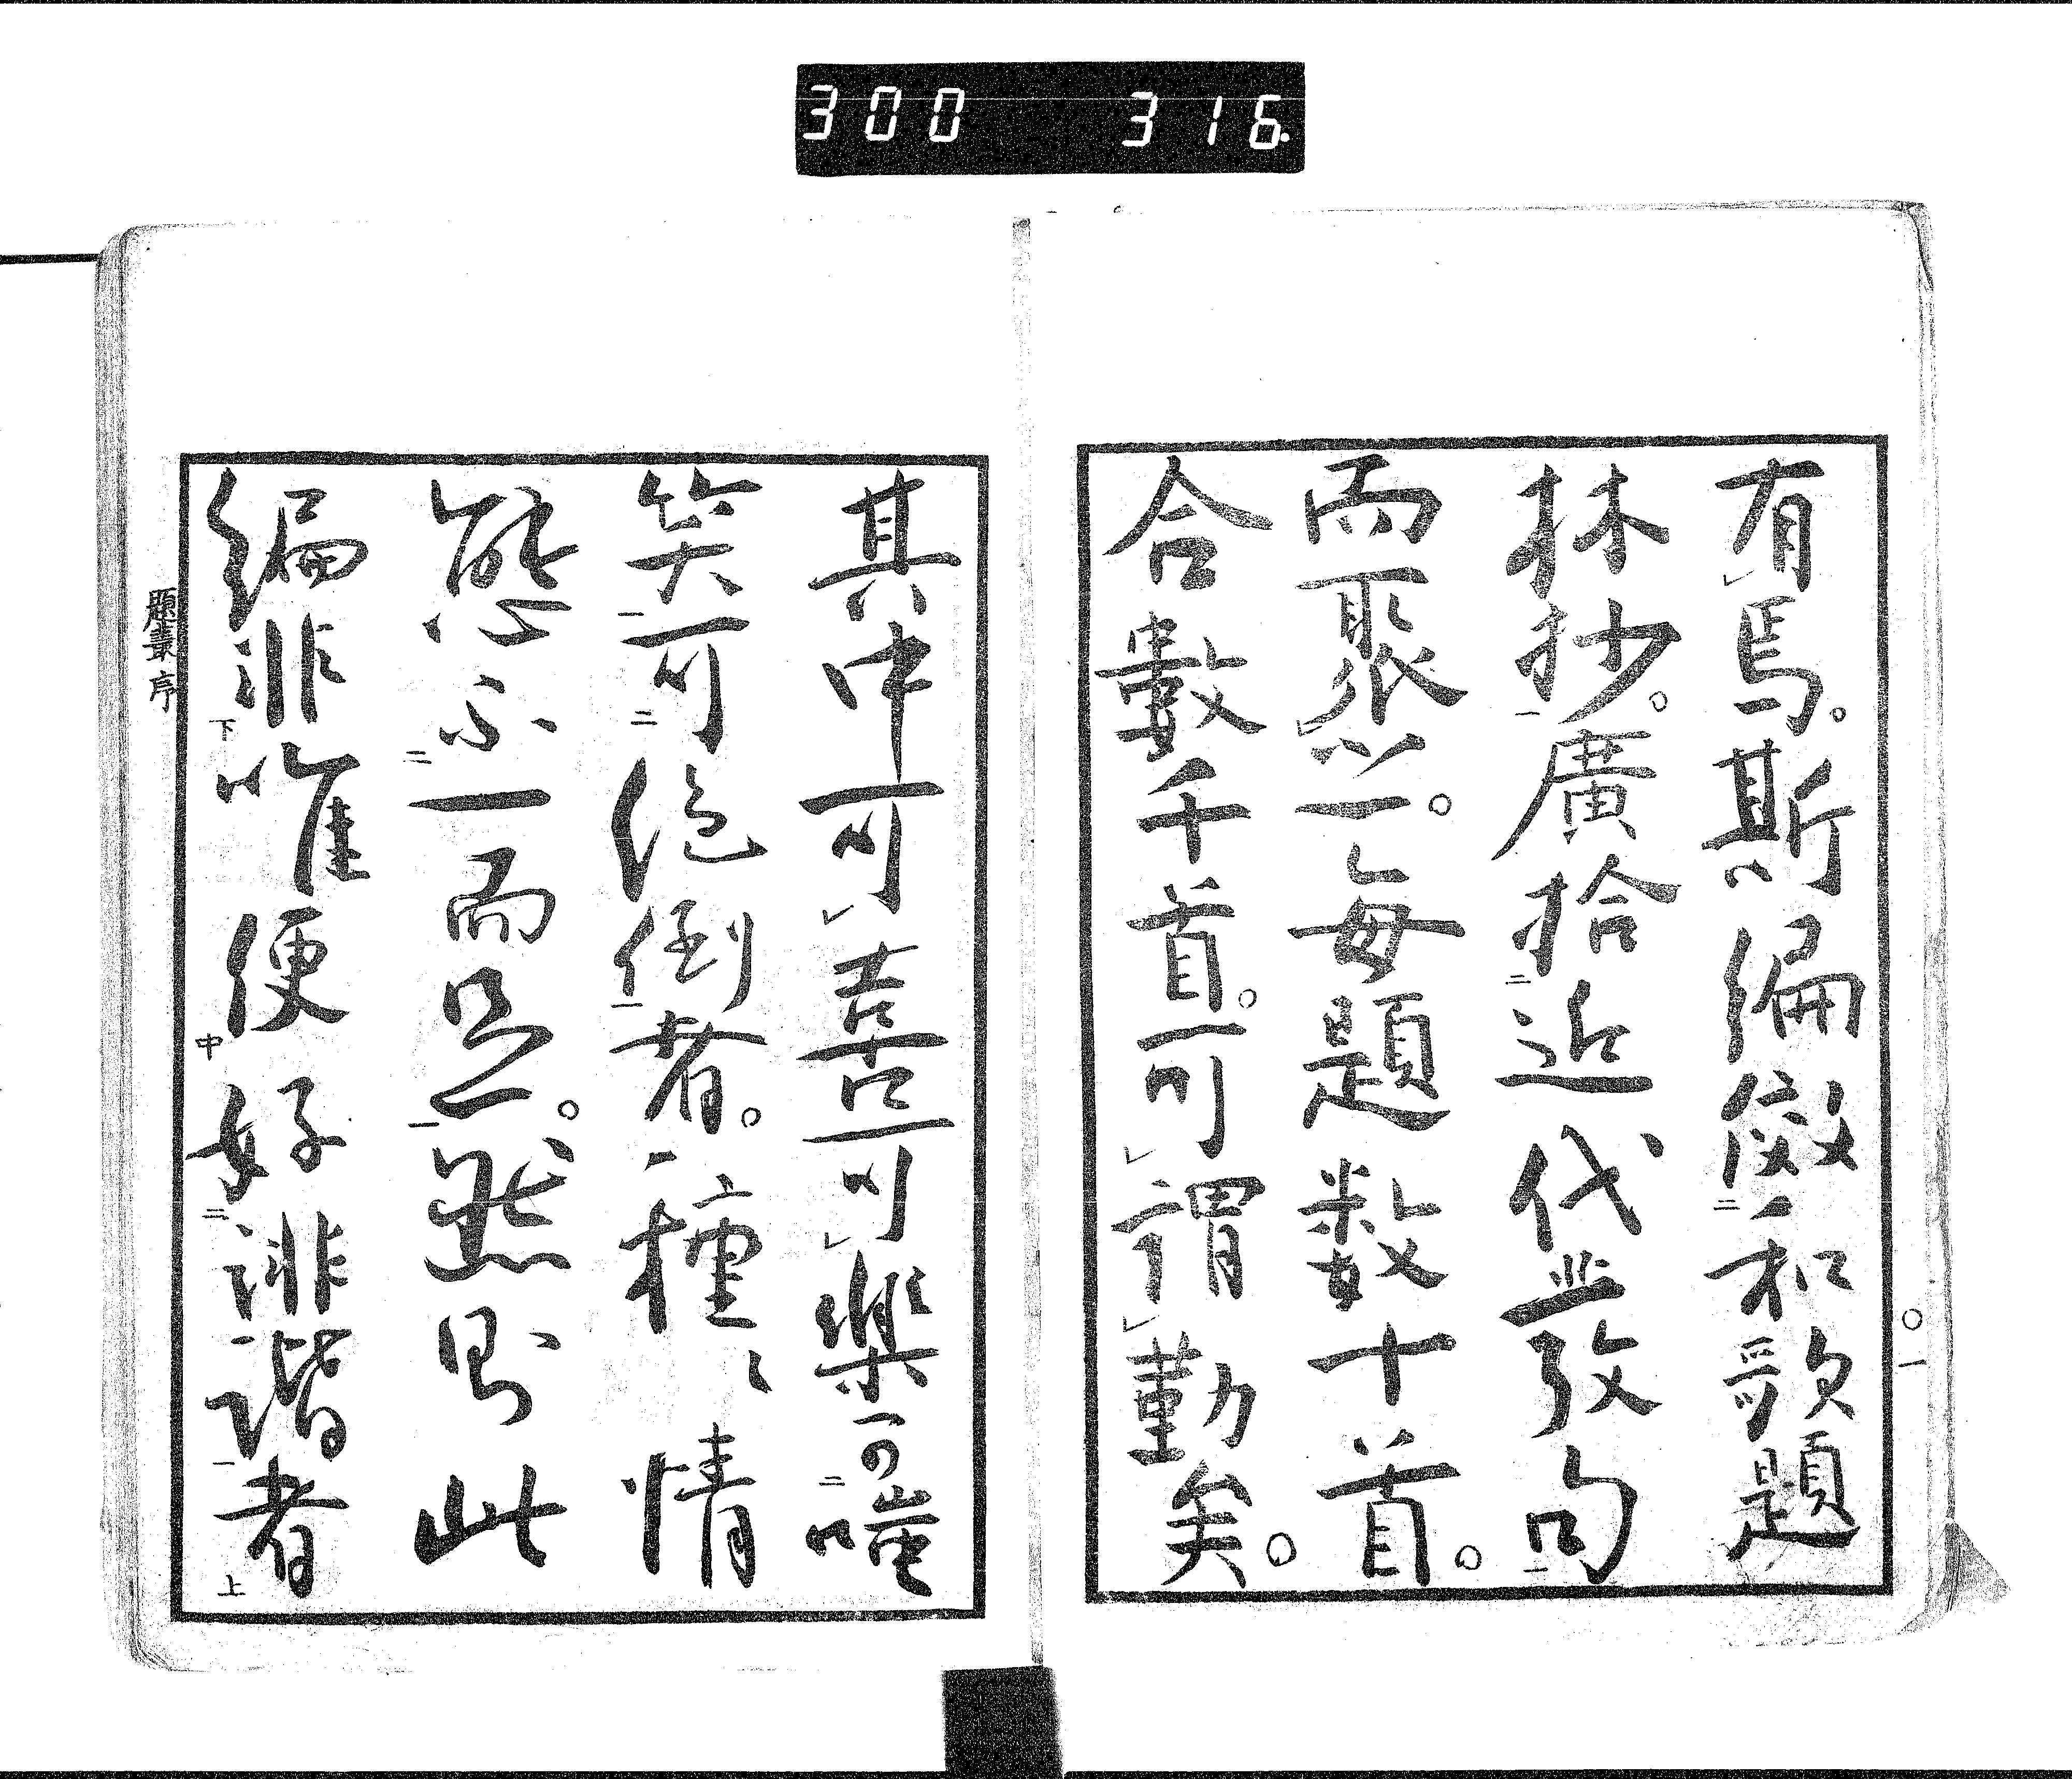 300 316.
有焉。斯編倣和歌題
林抄。廣拾近代發句
而聚以一。毎題数十首。
合數千首。可謂勤矣。
〇一
其中可喜可樂可嗤
笑可絶倒者。種〻情
態不一而足。然則此
編非唯便好誹諧者
題叢序